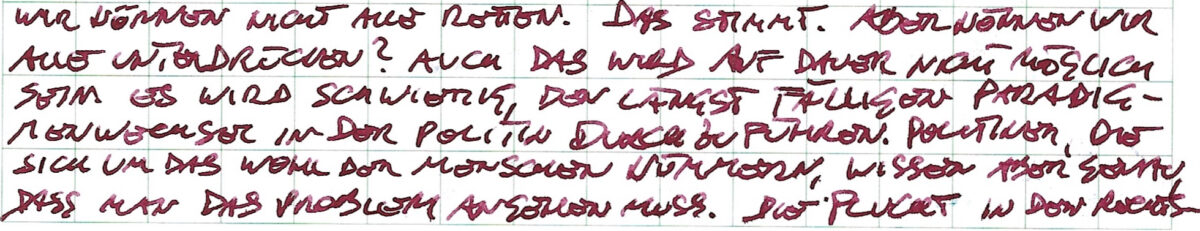 WIR KÖNNEN NICHT ALLE RETTEN. DAS STIMMT. ABER KÖNNEN WIR
ALLE UNTERDRÜCKEN? AUCH DAS WIRD AUF DAUER NICHT MÖGLICH
SEIN ES WIRD SCHWIERIG, DEN LÄNGST FÄLLIGEN PARADIG-
MENWECHSEL IN DER POLITIK DURCHZUFÜHREN. POLITIKER, DIE
SICH UM DAS WOHL DER MENSCHEN KÜMMERN, WISSEN ABER GENAU,
DASS MAN DAS PROBLEM ANGEHEN MUSS. DIE FLUCHT IN DEN RECHTS-